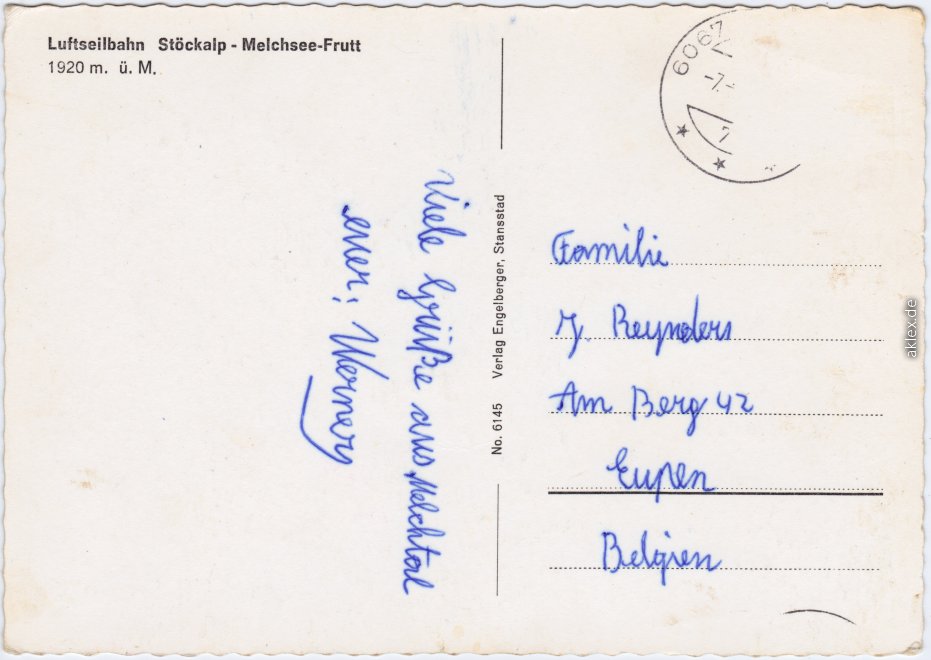 Luftseilbahn Stöckalp - Melchsee-Frutt
1920 m. ü. M.
Viele Grüße aus Melchtal
euer: Werner
No. 6145 Verlag Engelberger, Stansstad
6067
-7.-
Familie
J. Reynders
Am Berg 42
Eupen
Belgien
aklex.de